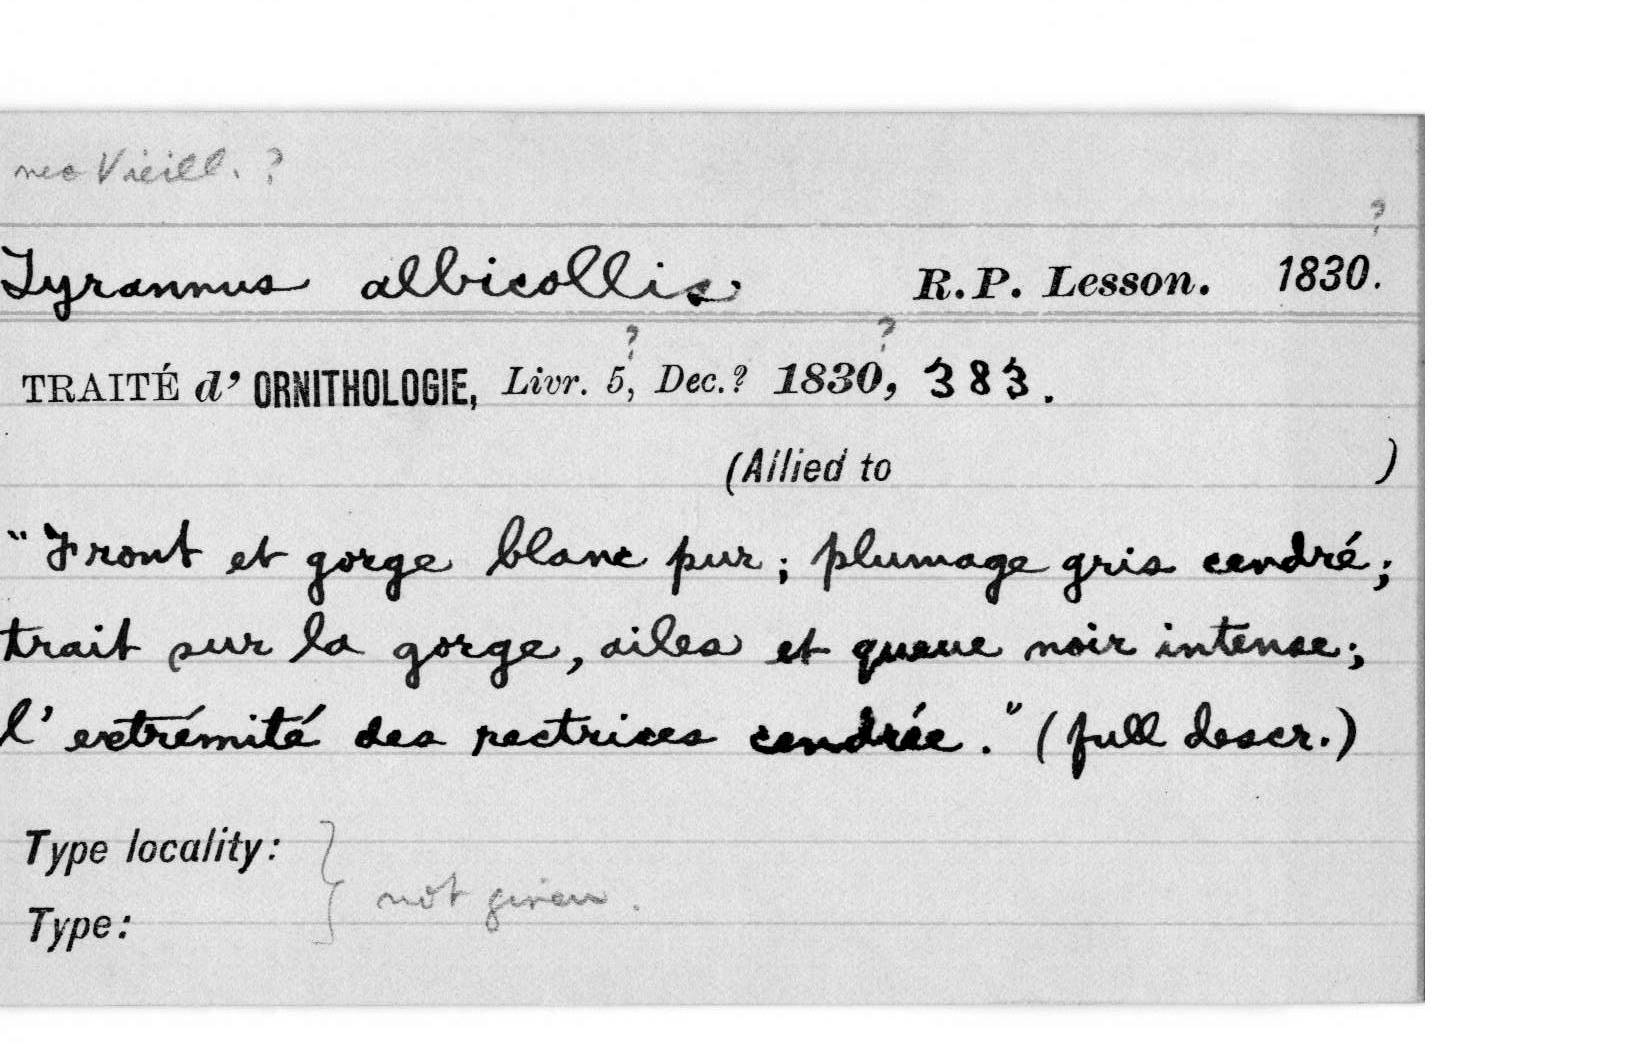 nec Vieill. ?
?
Tyrannus albicollis R.P. Lesson. 1830.
? ?
TRAITÉ d' ORNITHOLOGIE, Livr. 5, Dec.? 1830, 383.
(Allied to )
"Front et gorge blanc pur; plumage gris cendré;
trait sur la gorge, ailes et queue noir intense;
l'extrémité des rectrices cendrée." (full descr.)
Type locality:
not given.
Type: